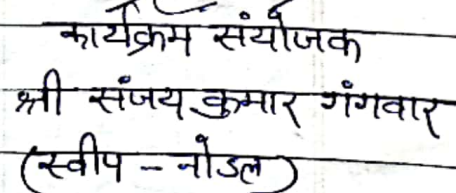 कार्यक्रम संयोजक
श्री संजय कुमार गंगवार
(स्वीप - नोडल)